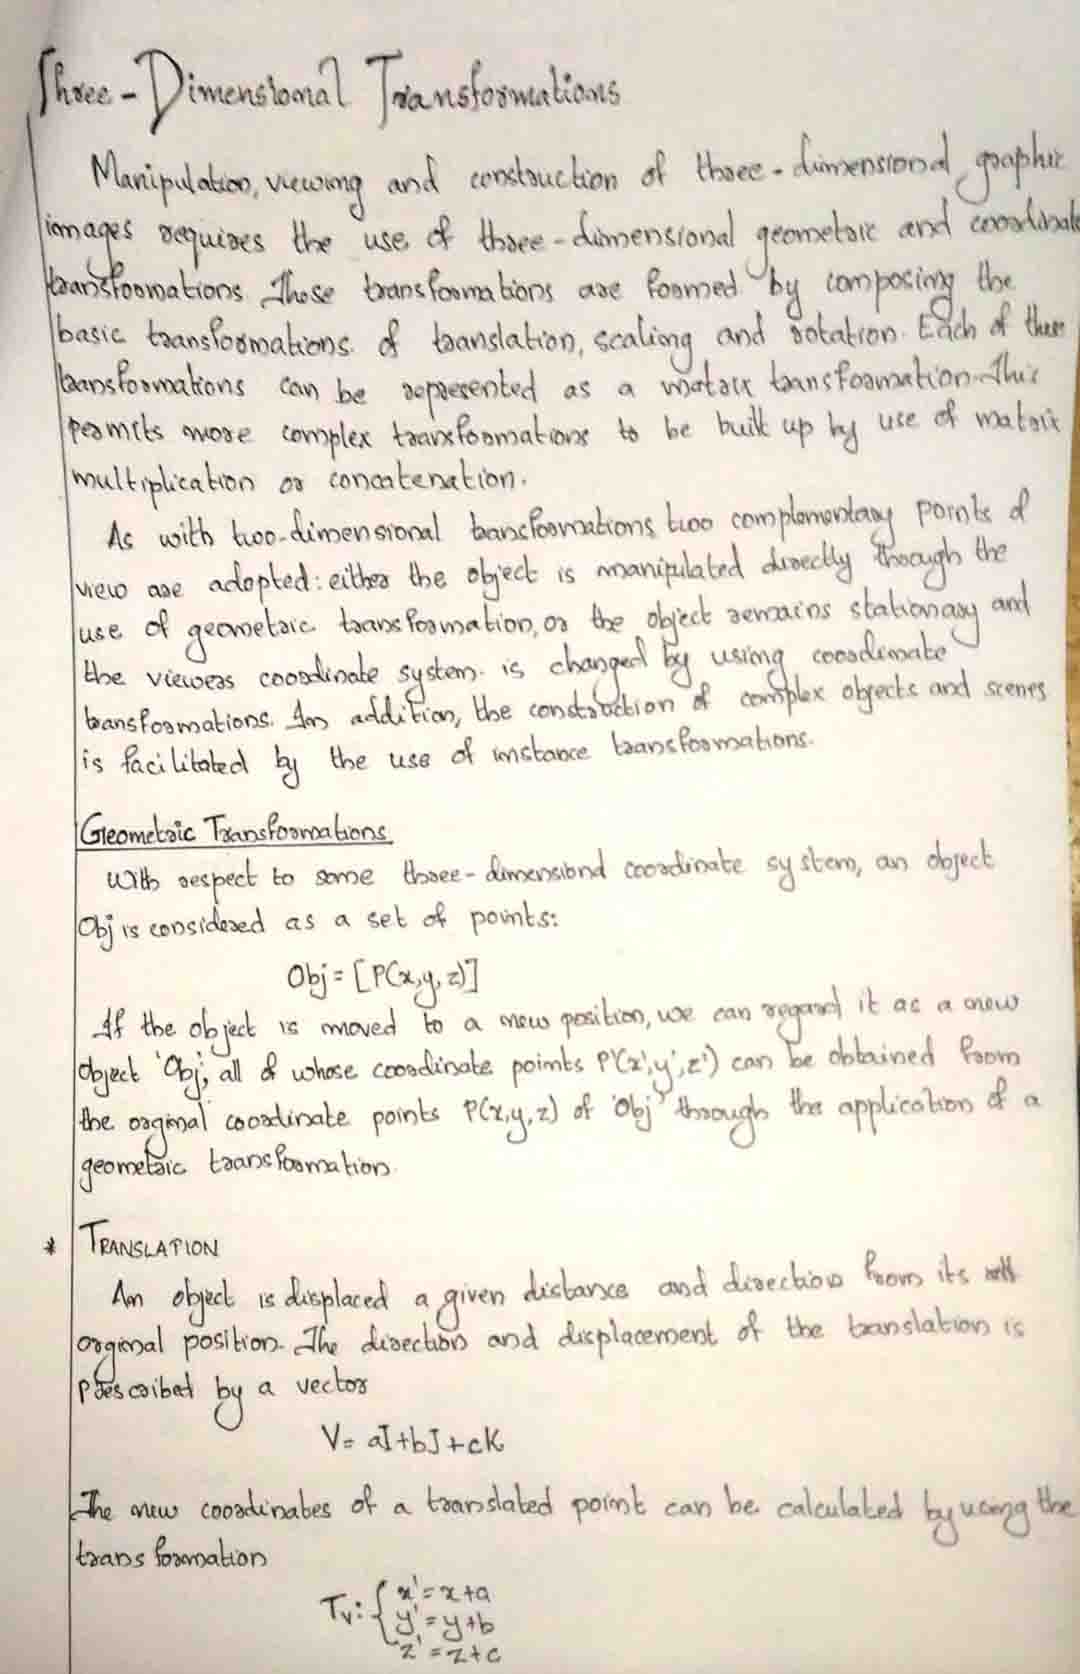 Three-Dimensional Transformations
Manipulation, viewing and construction of three-dimensional graphic
images requires the use of three-dimensional geometric and coordinate
transformations. These transformations are formed by composing the
basic transformations of translation, scaling and rotation. Each of these
transformations can be represented as a matrix transformation. This
permits more complex transformations to be built up by use of matrix
multiplication or concatenation.
As with two-dimensional transformations, two complementary points of
view are adopted: either the object is manipulated directly through the
use of geometric transformation, or the object remains stationary and
the viewers coordinate system is changed by using coordinate
transformations. In addition, the construction of complex objects and scenes
is facilitated by the use of instance transformations.
Geometric Transformations
With respect to some three-dimensional coordinate system, an object
Obj is considered as a set of points:
Obj = [P(x,y,z)]
If the object is moved to a new position, we can regard it as a new
object 'Obj', all of whose coordinate points P'(x',y',z') can be obtained from
the orginal coordinate points P(x,y,z) of 'Obj' through the application of a
geometric transformation.
* TRANSLATION
An object is displaced a given distance and direction from its
orginal position. The direction and displacement of the translation is
prescribed by a vector
V= aI+bJ+cK
The new coordinates of a translated point can be calculated by using the
transformation
Tv: { x' = x+a
y' = y+b
z' = z+c